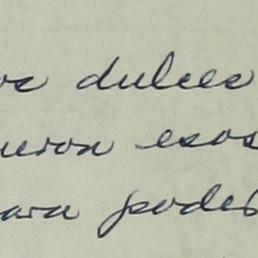 os dulces
ueron esos
para podes